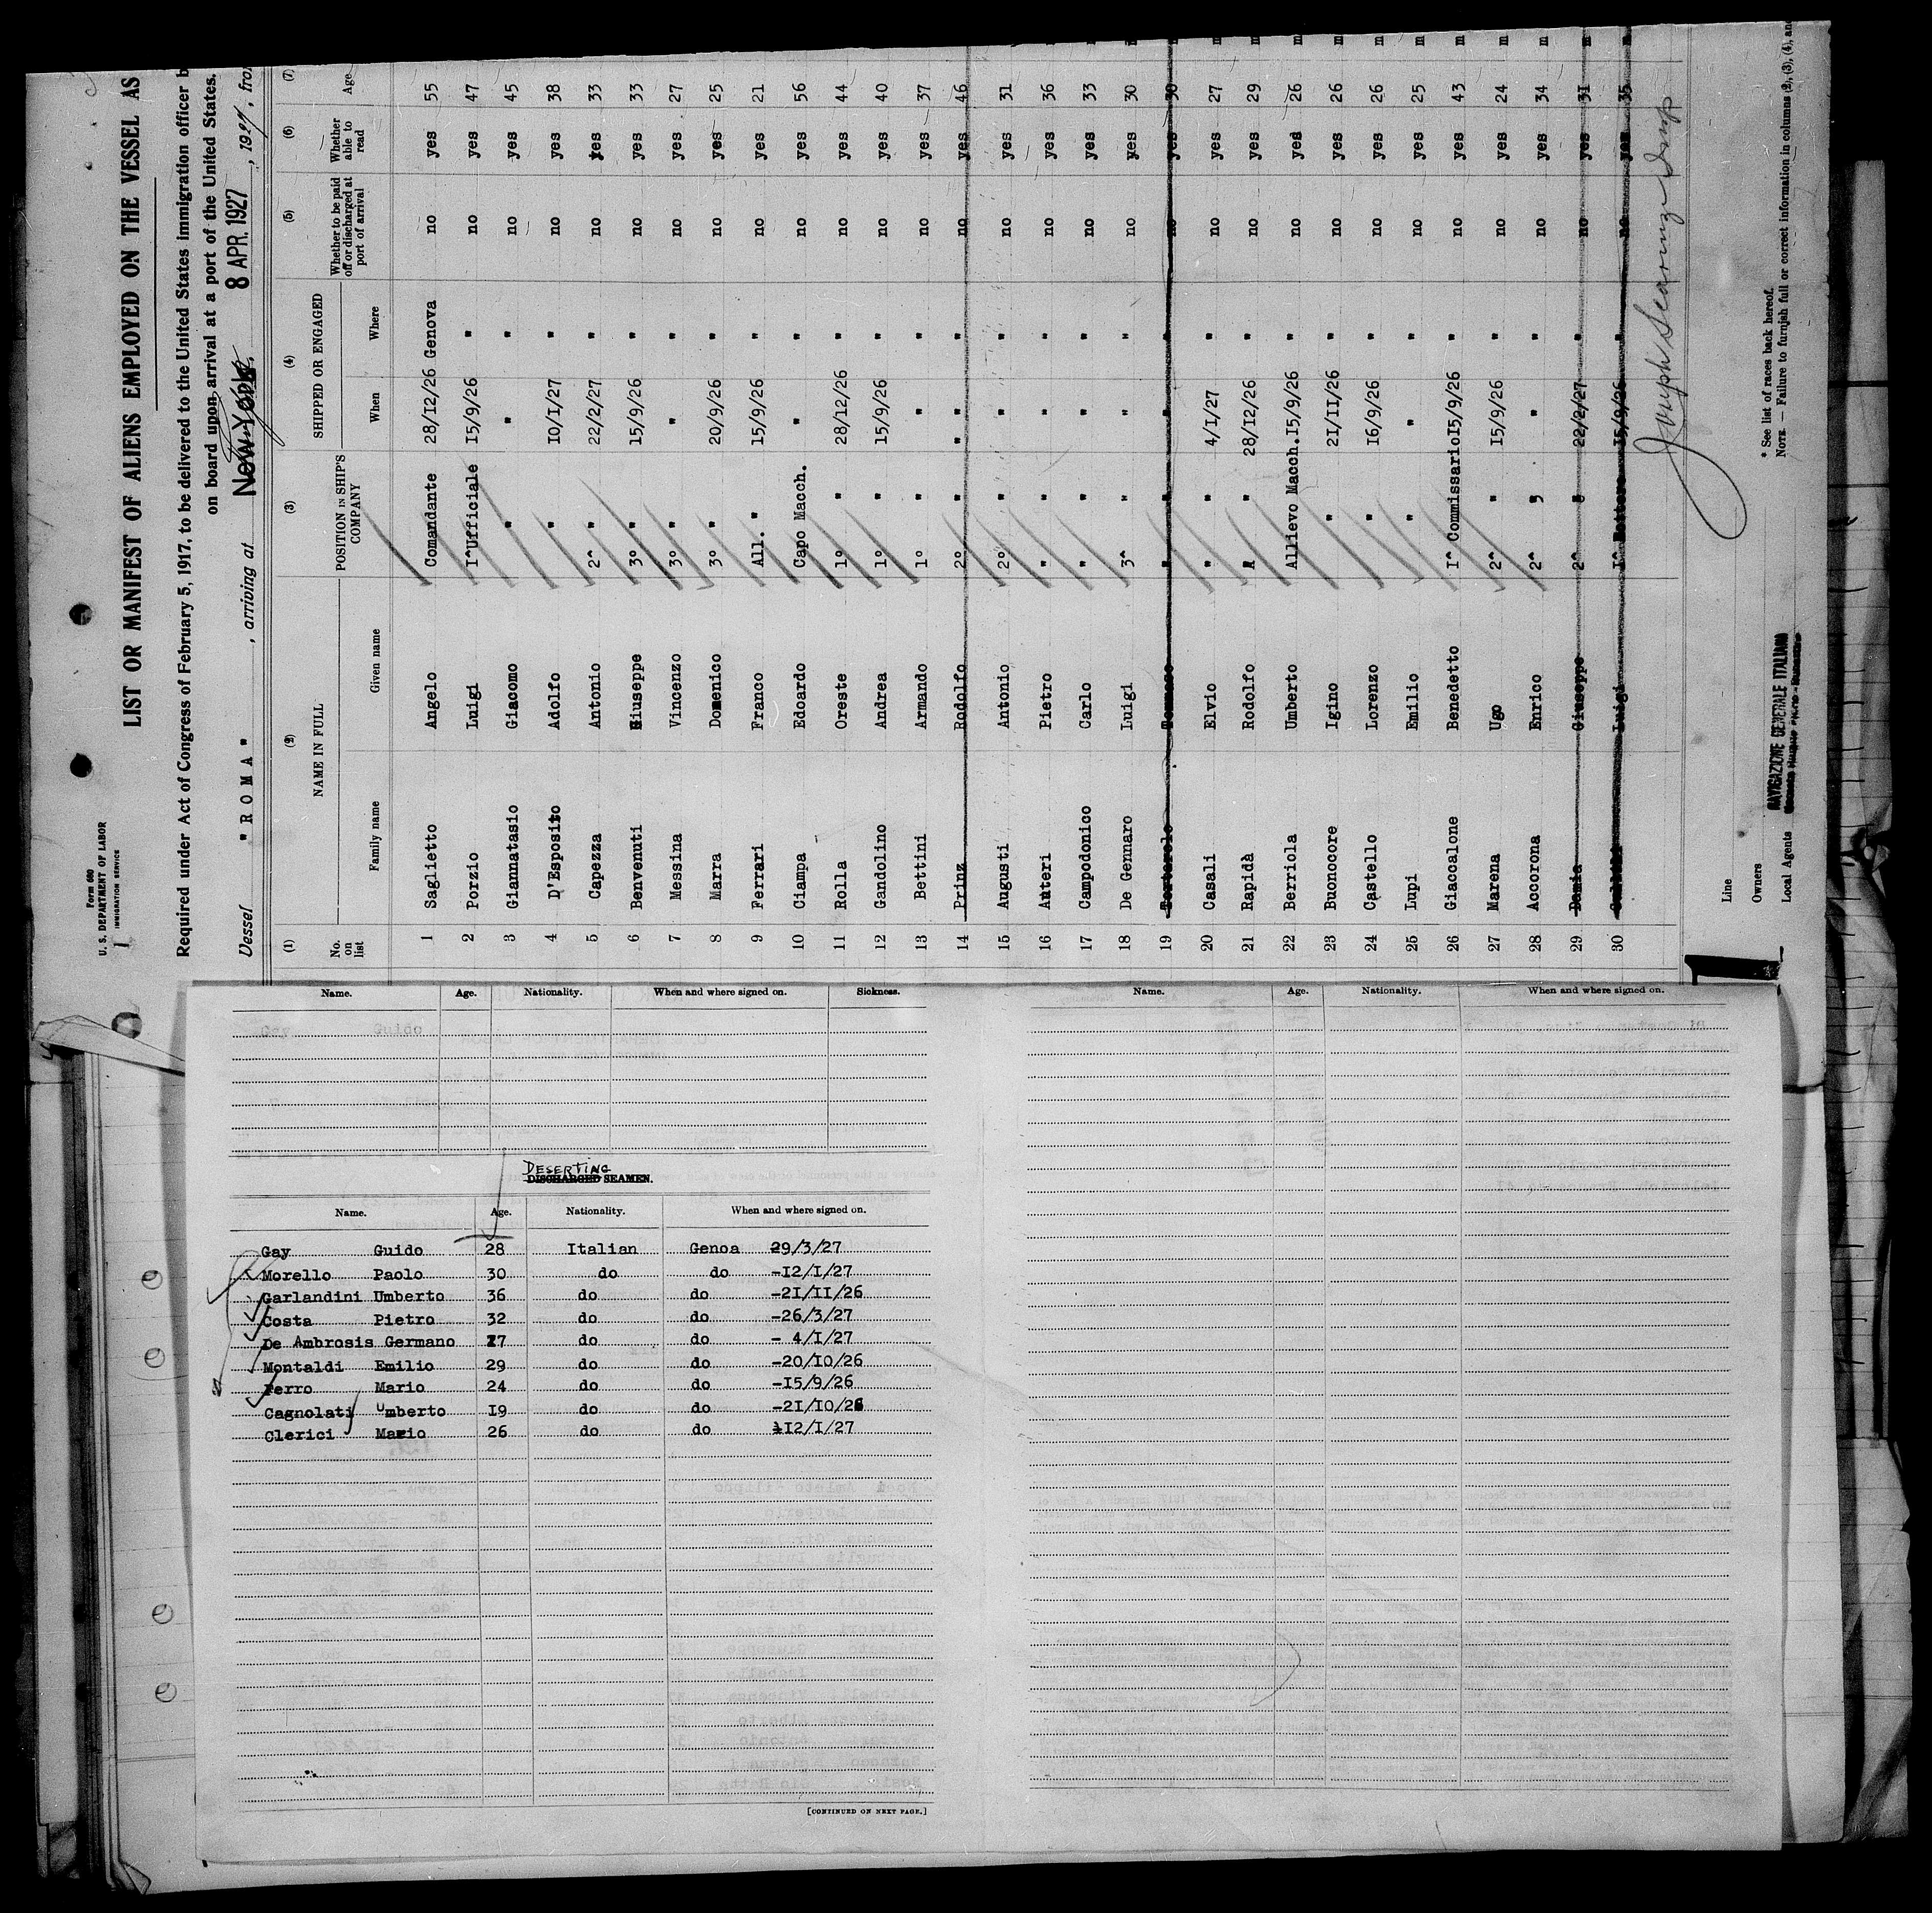 Form 680
U. S. DEPARTMENT OF LABOR
IMMIGRATION SERVICE
LIST OR MANIFEST OF ALIENS EMPLOYED ON THE VESSEL AS
Required under Act of Congress of February 5, 1917, to be delivered to the United States immigration officer b
on board upon arrival at a port of the United States.
Vessel "ROMA", arriving at New York. 8 APR. 1927, 1927, from
(1) (2) (3) (4) (5) (6) (7)
No. on list NAME IN FULL POSITION IN SHIP'S COMPANY SHIPPED OR ENGAGED Whether to be paid off or discharged at port of arrival Whether able to read Age
Family name Given name When Where
1 Saglietto Angelo Comandante 28/12/26 Genova no yes 55
2 Porzio Luigi I^Ufficiale 15/9/26 " no yes 47 m
3 Giannatasio Giacomo " " " no yes 45 m
4 D'Esposito Adolfo " 10/1/27 " no yes 38 m
5 Capezza Antonio 2^ " 22/2/27 " no yes 33 m
6 Benvenuti Giuseppe 3° " 15/9/26 " no yes 33 m
7 Messina Vincenzo 3° " " " no yes 27 m
8 Marra Domenico 3° " 20/9/26 " no yes 25 m
9 Ferrari Franco All. " 15/9/26 " no yes 21 m
10 Ciampa Edoardo Capo Macch. " " no yes 56 m
11 Rolla Oreste 1° " 28/12/26 " no yes 44 m
12 Gandolino Andrea 1° " 15/9/26 " no yes 40 m
13 Bettini Armando 1° " " " no yes 37 m
14 Prinz Rodolfo 2° " " " no yes 46 m
15 Augusti Antonio 2° " " " no yes 31 m
16 Auteri Pietro " " " " no yes 36 m
17 Campodonico Carlo " " " " no yes 33 m
18 De Gennaro Luigi 3^ " " " no yes 30 m
19 Tortarolo Tommaso " " " " no yes 30 m
20 Casali Elvio " " 4/1/27 " no yes 27 m
21 Rapidà Rodolfo " " 28/12/26 " no yes 29 m
22 Berriola Umberto Allievo Macch. 15/9/26 " no yes 26 m
23 Buonocore Igino " 21/11/26 " no yes 26 m
24 Castello Lorenzo " 16/9/26 " no yes 26 m
25 Lupi Emilio " " " no yes 25 m
26 Giaccalone Benedetto I^ Commissario 15/9/26 " no yes 43 m
27 Marena Ugo 2^ " 15/9/26 " no yes 24 m
28 Accorona Enrico 2^ " " " no yes 34 m
29 Damia Giuseppe 2^ " 22/2/27 " no yes 31 m
30 Luigi I^ 15/9/26 " no yes 35 m
Joseph
Line
Owners
Local Agents NAVIGAZIONE GENERALE ITALIANA
* See list of races back hereof.
NOTE — Failure to furnish full or correct information in columns (2), (3), (4), and
Name. Age. Nationality. When and where signed on. Sickness.
DESERTING
DISCHARGED SEAMEN.
Name. Age. Nationality. When and where signed on.
Gay Guido 28 Italian Genoa 29/3/27
Morello Paolo 30 do do -12/1/27
Garlandini Umberto 36 do do -21/11/26
Costa Pietro 32 do do -26/3/27
De Ambrosis Germano 27 do do - 4/1/27
Montaldi Emilio 29 do do -20/10/26
Ferro Mario 24 do do -15/9/26
Cagnolati Umberto 19 do do -21/10/26
Clerici Mario 26 do do 12/1/27
[CONTINUED ON NEXT PAGE.]
Name. Age. Nationality. When and where signed on.